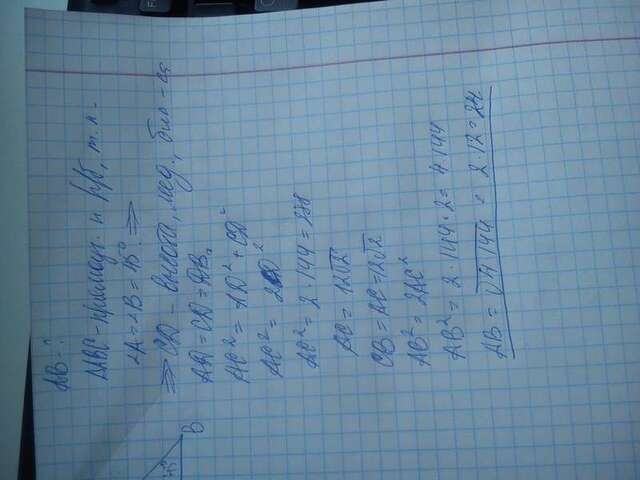 AB - ?
△ABC - прямоуг и р/б, т.к.
∠A = ∠B = 45° ⇒
⇒ CD - высота, мед., бис-са
AD = CD = DB.
AC² = AD² + CD²
AC² = 2CD²
AC² = 2 · 144 = 288
AC = 12√2
CB = AC = 12√2
AB² = 2AC²
AB² = 2 · 144 · 2 = 4 · 144
AB = √4 · 144 = 2 · 12 = 24
B
45°